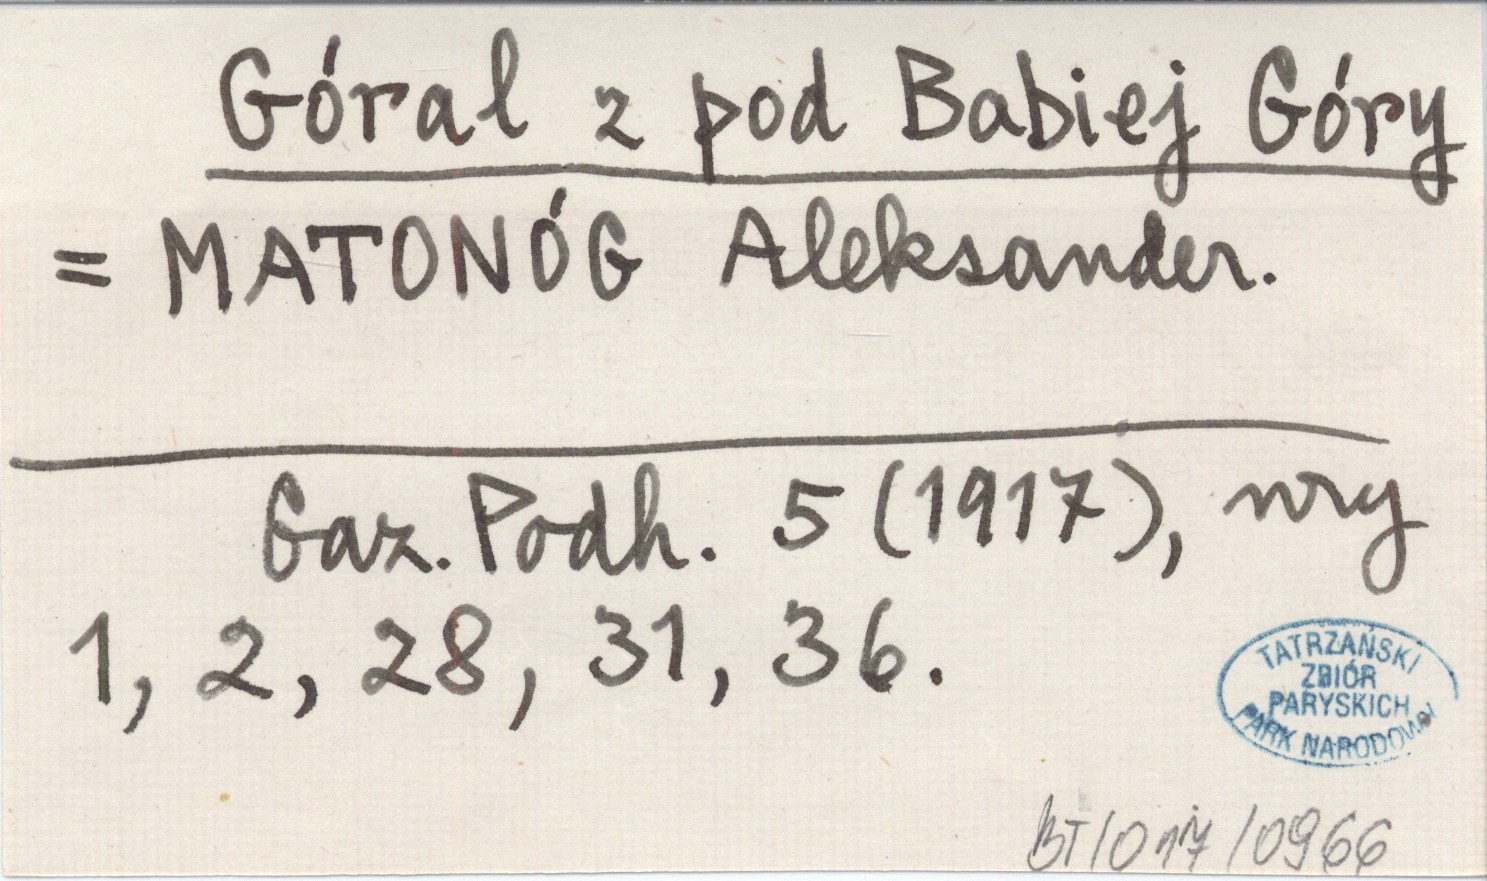 Góral z pod Babiej Góry
= MATONÓG Aleksander.
Gaz. Podh. 5 (1917), nry
1, 2, 28, 31, 36.
TATRZAŃSKI
ZBIÓR
PARYSKICH
PARK NARODOWY
BT/017/0966